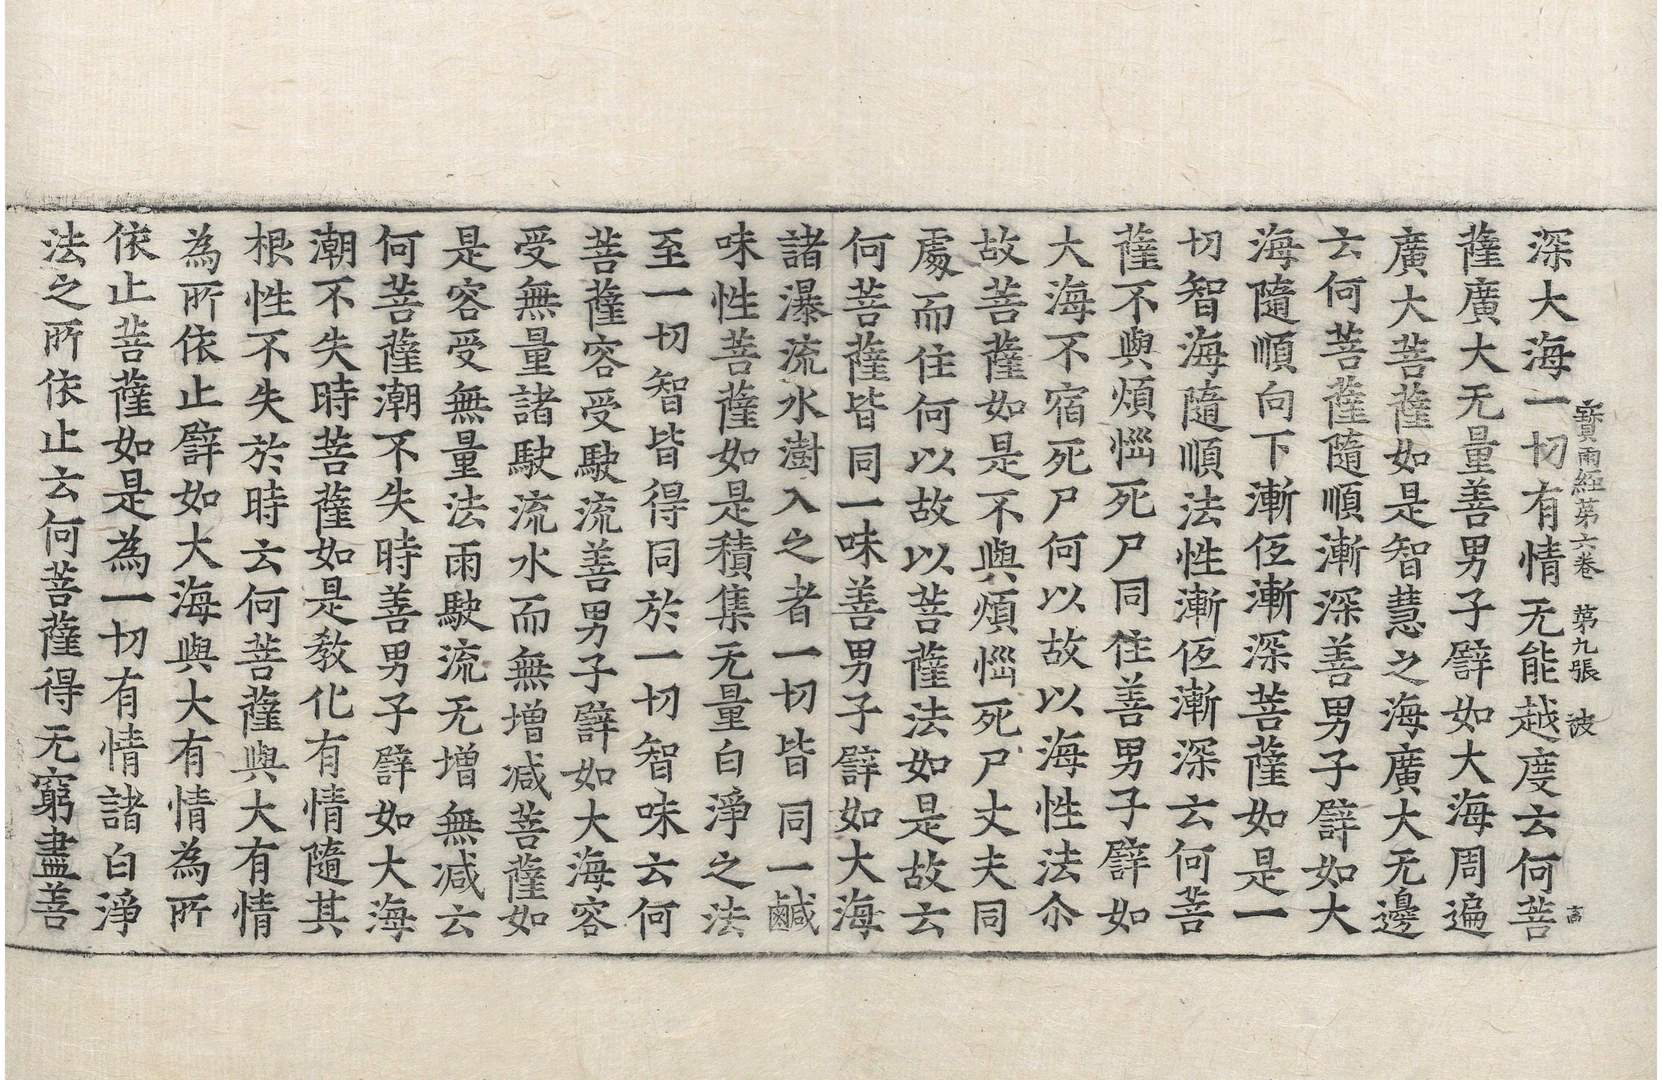 寳雨經苐六卷 苐九張 波
高
深大海一切有情无能越度云何菩
薩廣大无量善男子譬如大海周遍
廣大菩薩如是智慧之海廣大无邊
云何菩薩隨順漸深善男子譬如大
海隨順向下漸伍漸深菩薩如是一
切智海隨順法性漸伍漸深云何菩
薩不與煩惱死尸同住善男子譬如
大海不宿死尸何以故以海性法尒
故菩薩如是不與煩惱死尸丈夫同
處而住何以故以菩薩法如是故云
何菩薩皆同一味善男子譬如大海
諸瀑流水澍入之者一切皆同一鹹
味性菩薩如是積集无量白淨之法
至一切智皆得同於一切智味云何
菩薩容受駛流善男子譬如大海容
受無量諸駛流水而無增減菩薩如
是容受無量法雨駛流无增無減云
何菩薩潮不失時善男子譬如大海
潮不失時菩薩如是教化有情隨其
根性不失於時云何菩薩與大有情
為所依止譬如大海與大有情為所
依止菩薩如是為一切有情諸白淨
法之所依止云何菩薩得无窮盡善